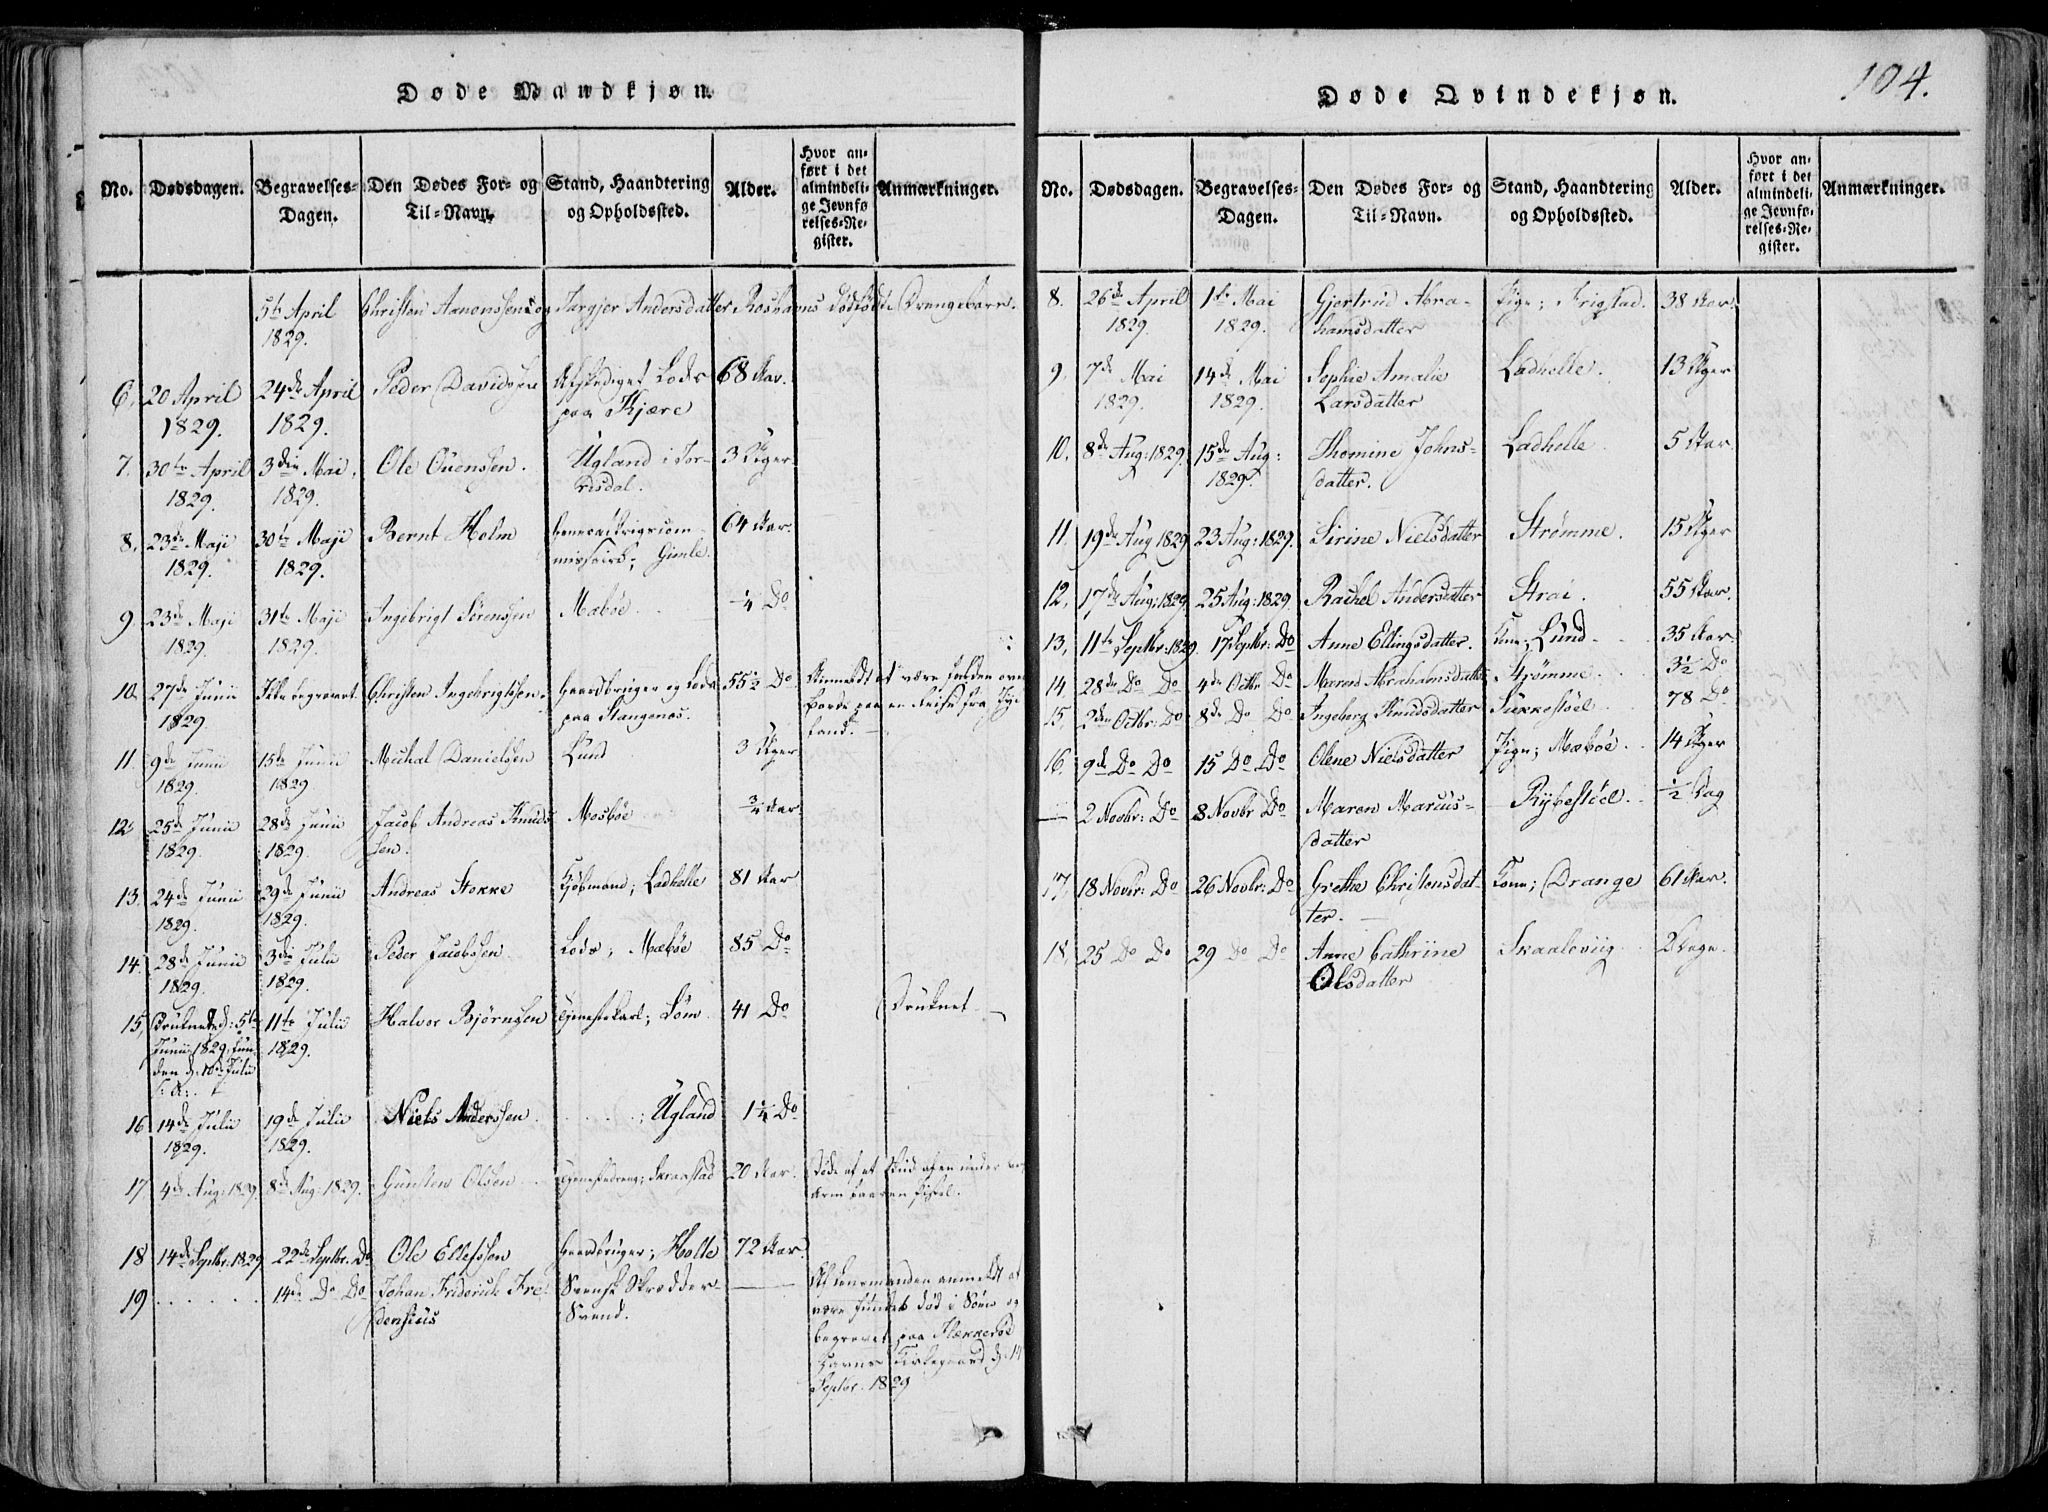 Døde Mandkjøn.
No. Dødsdagen. Begravelses-Dagen. Den Dødes For- og Til-Navn. Stand, Haandtering og Opholdssted. Alder. Hvor anført i det almindelige Jevnførelses-Register. Anmærkninger.
5te April Christen Aanonssens og Targjer Andersdatter Roshavns dødfødte Drengebarn.
1829.
6. 20 April 24de April Peder Davidsen Afskediget Lods 68 Aar.
1829. 1829. paa Kjære
7. 30te April 3die Mai, Ole Ouensen. Ugland i Tor- 3 Uger.
1829. 1829. risdal.
8. 23de Maji 30te Maji Bernt Holm 64 Aar.
1829. 1829. Gimle.
9 23de Maji 31te Maji Ingebrigt Sørensen Mæbøe ¼ Do
1829. 1829.
10. 27de Junii Ikke begravet. Christen Ingebrigtsen. Gaardbruger og Lods 55½ Do Anmeldt at være falden over
1829. paa Stangenæs. borde paa en Reise fra Jyl-
land.
11. 9de Junii 15de Junii Michal Danielsen Lund 3 Uger
1829. 1829
12. 25de Junii 28de Junii Jacob Andreas Knuds- Mosbøe ¾ Aar
1829. 1829. sen.
13. 24de Junii 29de Junii Andreas Stokke Kjøbmand; Ladhelle 81 Aar
1829. 1829.
14. 28de Junii 3die Julii Peder Jacobssen Lods; Mæbøe 85 Do
1829. 1829.
15, Druknede d: 5te 11te Julii Halvor Bjørnsen Tjenestekarl; Søm 41 Do Druknet
Junii 1829, fun- 1829.
den d. 10de Julii
s: A:
16 14de Julii 19de Julii Niels Anderssen ; Ugland 1¼ Do
1829. 1829.
17 4de Aug: 1829 8de Aug: 1829. Gunsten Olsen Tjenestedreng; Skraastad 20 Aar. Døde af et Skud af en
18 14de Septbr: 1829 22de Septbr. Do Ole Ellefssen Gaardbruger; Holte 72 Aar.
19 14de Do Do Johan Friderick Fre- Svensk Skrædder- Af Lensmanden anmeldt at
densiüs Svend. være fundet død i Søen og
begravet paa Flekkerøe
Havns Kirkegaard d: 14
Septbr. 1829
104.
Døde Qvindekjøn.
No. Dødsdagen. Begravelses-Dagen. Den Dødes For- og Til-Navn. Stand, Haandtering og Opholdssted. Alder. Hvor anført i det almindelige Jevnførelses-Register. Anmærkninger.
8. 26de April 1te Mai Gjertrud Abra- Pige; Frigstad. 38 Aar.
1829. 1829. hamsdatter
9. 7de Mai 14de Mai Sophie Amalie Ladhelle. 13 Uger
1829. 1829. Larsdatter
10. 8de Aug: 1829. 15de Aug: Thomine Johns- Ladhelle 5 Aar.
1829. datter.
11. 19de Aug 1829 23 Aug: 1829. Sirine Nielsdatter Strømme. 15 Uger
12, 17de Aug: 1829 25 Aug: 1829. Rachel Andersdatter Strai. 55 Aar.
13, 11te Septbr: 1829. 17 Septbr: Do Anne Ellingsdatter. Kone; Lund 35 Aar.
14 28de Do Do 4de Octbr Do Maren Abrahamsdatter Strømme. 3½ Do
15. 2den Octbr: Do 8de Do Do Ingeborg Knudsdatter Sukkestøel 78 Do
16. 9de Do Do 15 Do Do Olene Nielsdatter Pige; Mæbøe. 14 Uger
— 2 Novbr: Do 8 Novbr Do Maren Marcus- Rybestøel. ½ Dag
datter
17, 18 Novbr: Do 26 Novbr: Do Grethe Christensdat- Kone; Drange 61 Aar.
ter.
18, 25 Do Do 29 Do Do Anne Cathrine Skaaleviig 2 Dage.
Olsdatter